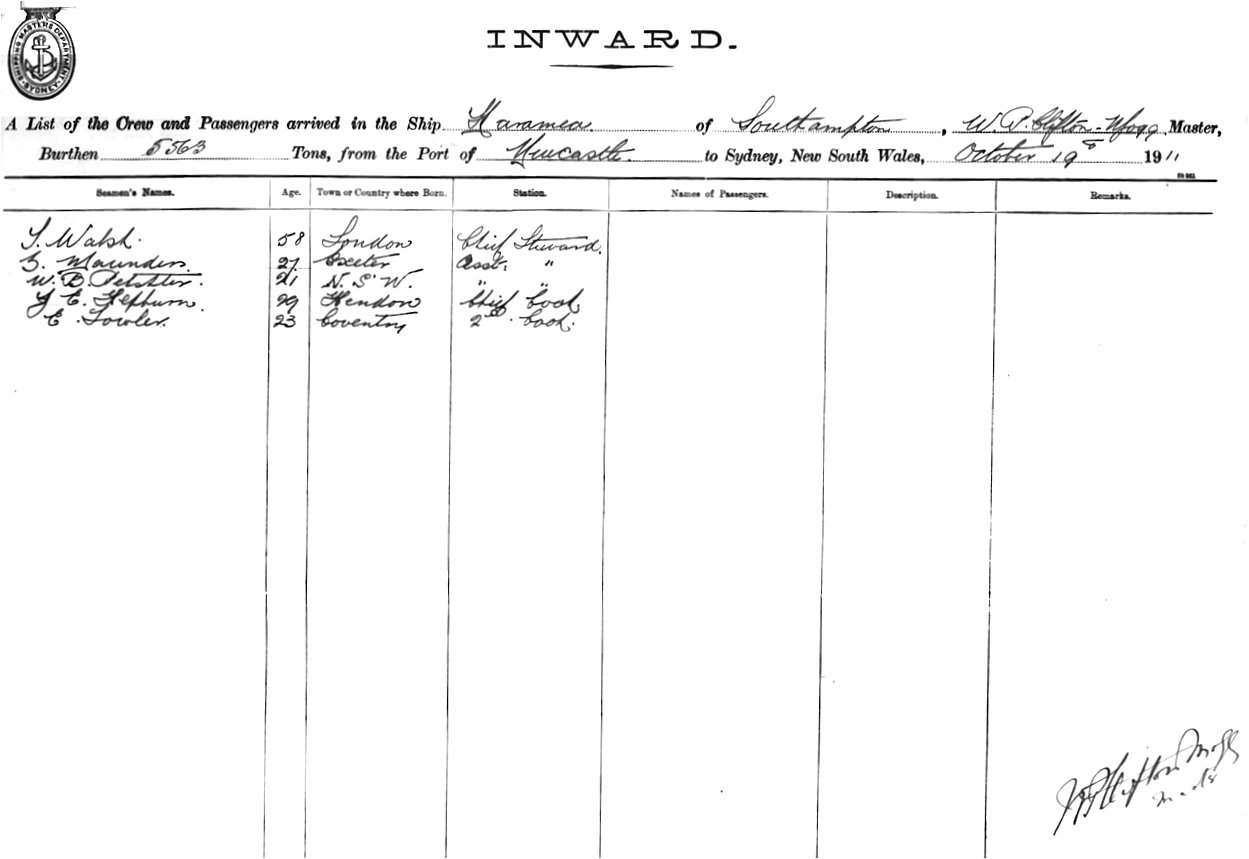 SHIPPING MASTERS DEPARTMENT SYDNEY
INWARD.
A List of the Crew and Passengers arrived in the Ship Karamea of Southampton, W. P. Clifton-Mogg Master,
Burthen 5563 Tons, from the Port of Newcastle to Sydney, New South Wales, October 19th 1911
Seamen's Names. Age. Town or Country where Born. Station. Names of Passengers. Description. Remarks.
Walsh. 58 London Chief Steward.
Maunders. 27 Exeter Asst. "
W. B. 21 N. S. W. " "
E. Hepburn. 29 Hendon Chief Cook
E. Fowler. 23 Coventry 2nd. Cook.
Clifton Mogg